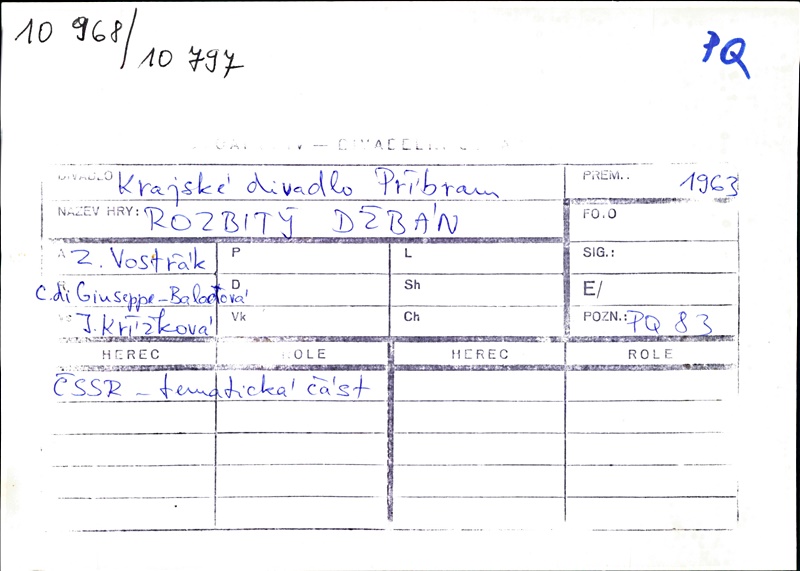 10 968/
10 797
PQ
DIVADLO Krajské divadlo Příbram PREM.: 1963
NÁZEV HRY: ROZBITÝ DŽBÁN FO.O
A Z. Vostřák P L SIG.:
C. di Giuseppe-Balaďová D Sh E/
J. Křížková Vk Ch POZN.: PQ 83
HEREC ROLE HEREC ROLE
ČSSR - tematická část